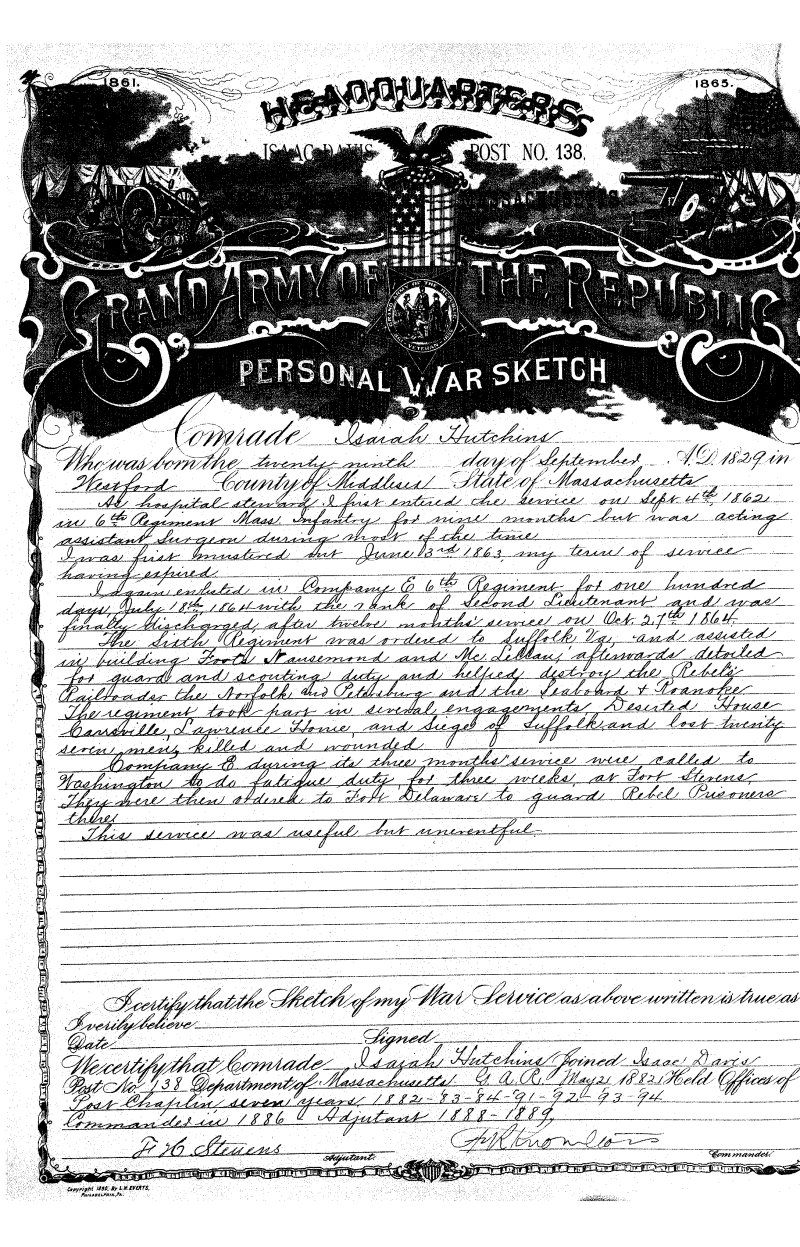 1861.
1865.
HEADQUARTERS
ISAAC DAVIS POST NO. 138.
MASSACHUSETTS
GRAND ARMY OF THE REPUBLIC
PERSONAL WAR SKETCH
Comrade Isaiah Hutchins
Who was born the twenty ninth day of September A.D. 1829 in
Westford County of Middlesex State of Massachusetts
As hospital steward I first entered the service on Sept 4th, 1862
in 6th Regiment Mass. Infantry for nine months but was acting
assistant Surgeon during most of the time
I was first mustered out June 3rd 1863, my term of service
having expired.
I again enlisted in Company E 6th Regiment for one hundred
days, July 18th, 1864 with the rank of Second Lieutenant and was
finally discharged, after twelve months service on Oct. 27th 1864.
The Sixth Regiment was ordered to Suffolk Va, and assisted
in building Forts Nansemond and Mc Lellan, afterwards detailed
for guard and scouting duty and helped destroy the Rebels
Railroads the Norfolk and Petersburg and the Seaboard & Roanoke
The regiment took part in several engagements, Deserted House
Carrsville, Lawrence House, and Siege of Suffolk and lost twenty
seven men, killed and wounded.
Company E during its three months' service were called to
Washington to do fatigue duty, for three weeks, at Fort Stevens.
They were then ordered to Fort Delaware to guard Rebel Prisoners
there.
This service was useful but uneventful.
I certify that the Sketch of my War Service as above written is true as
I verily believe
Date Signed
We certify that Comrade Isaiah Hutchins Joined Isaac Davis
Post No. 138 Department of Massachusetts G.A.R. May 2 1882 Held Offices of
Post Chaplin, seven years, 1882-83-84-91-92-93-94
Commander in 1886 Adjutant 1888-1889
F H Stevens
Adjutant. Commander
Copyright 1890, By L.H. EVERTS,
PHILADELPHIA, PA.